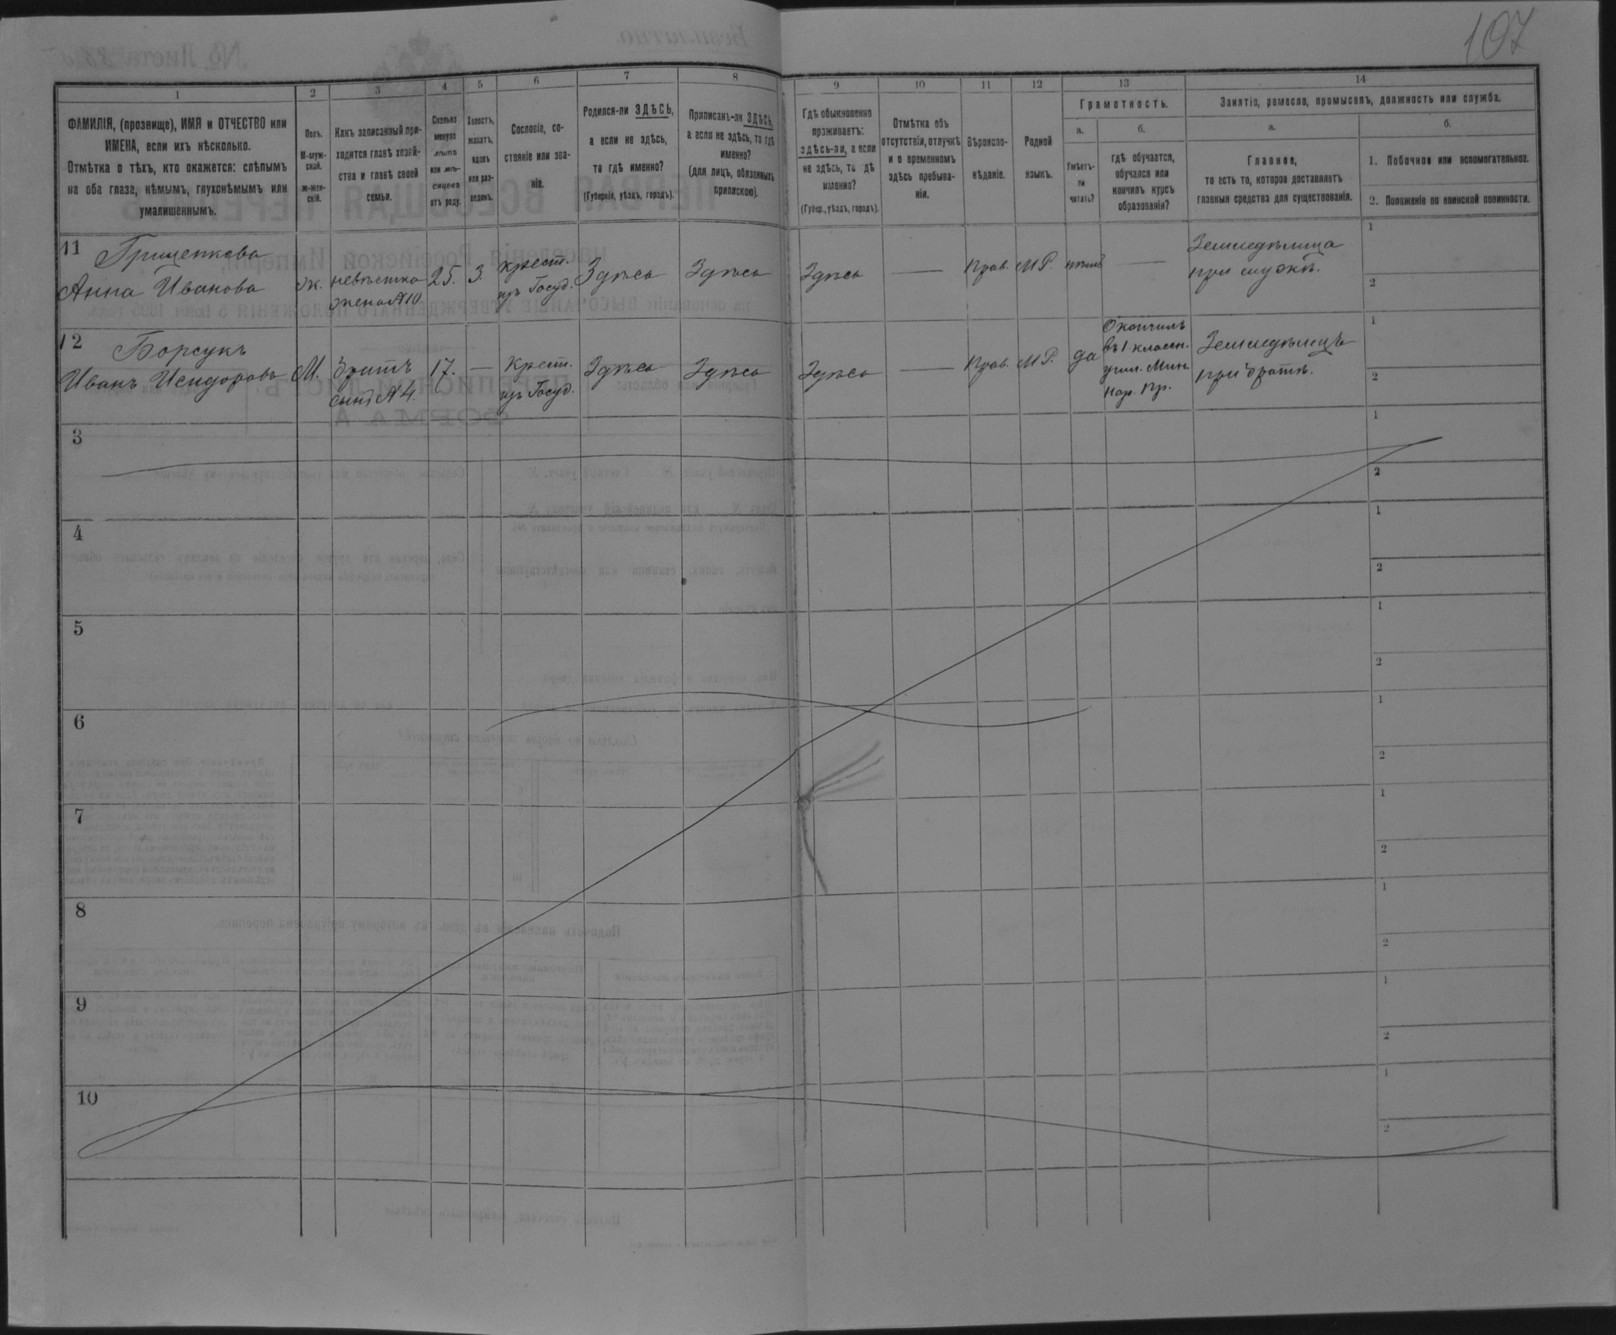 107
1
2
3
4
5
6
7
8
9
10
11
12
13
14
ФАМИЛІЯ, (прозвище), ИМЯ и ОТЧЕСТВО или
ИМЕНА, если ихъ нѣсколько.
Отмѣтка о тѣхъ, кто окажется: слѣпымъ
на оба глаза, нѣмымъ, глухонѣмымъ или
умалишеннымъ.
Полъ.
М-муж-
ской.
Ж-жен-
скій.
Какъ записанный при-
ходится главѣ хозяй-
ства и главѣ своей
семьи.
Сколько
минуло
лѣтъ
или мѣ-
сяцевъ
отъ роду.
Холостъ,
женатъ,
вдовъ
или раз-
веденъ.
Сословіе, со-
стояніе или зва-
ніе.
Родился-ли ЗДѢСЬ,
а если не здѣсь,
то гдѣ именно?
(Губернія, уѣздъ, городъ).
Приписанъ-ли ЗДѢСЬ,
а если не здѣсь, то гдѣ
именно?
(для лицъ, обязанныхъ
припискою).
Гдѣ обыкновенно
проживаетъ:
здѣсь-ли, а если
не здѣсь, то гдѣ
именно?
(Губер., уѣздъ, городъ).
Отмѣтка объ
отсутствіи, отлучкѣ
и о временномъ
здѣсь пребыва-
ніи.
Вѣроиспо-
вѣданіе.
Родной
языкъ.
Грамотность.
а.
б.
Умѣетъ-
ли
читать?
гдѣ обучается,
обучался или
кончилъ курсъ
образованія?
Занятіе, ремесло, промыселъ, должность или служба.
а.
б.
Главное,
то есть то, которое доставляетъ
главныя средства для существованія.
1. Побочное или вспомогательное.
2. Положеніе по воинской повинности.
11 Грищенкова
Анна Иванова
ж.
невѣстка
жена №10
25.
З.
крест.
изъ Госуд.
Здѣсь
Здѣсь
Здѣсь
—
Прав.
М.Р.
нѣтъ
—
Земледѣлица
при мужѣ.
1
2
12 Борсукъ
Иванъ Исидоровъ
М.
братъ
сынъ №4
17.
—
Крест.
изъ Госуд.
Здѣсь
Здѣсь
Здѣсь
—
Прав.
М.Р.
да
Окончилъ
въ 1 классн.
учил. Мин.
Нар. Пр.
Земледѣлецъ
при братѣ.
1
2
3
1
2
4
1
2
5
1
2
6
1
2
7
1
2
8
1
2
9
1
2
10
1
2